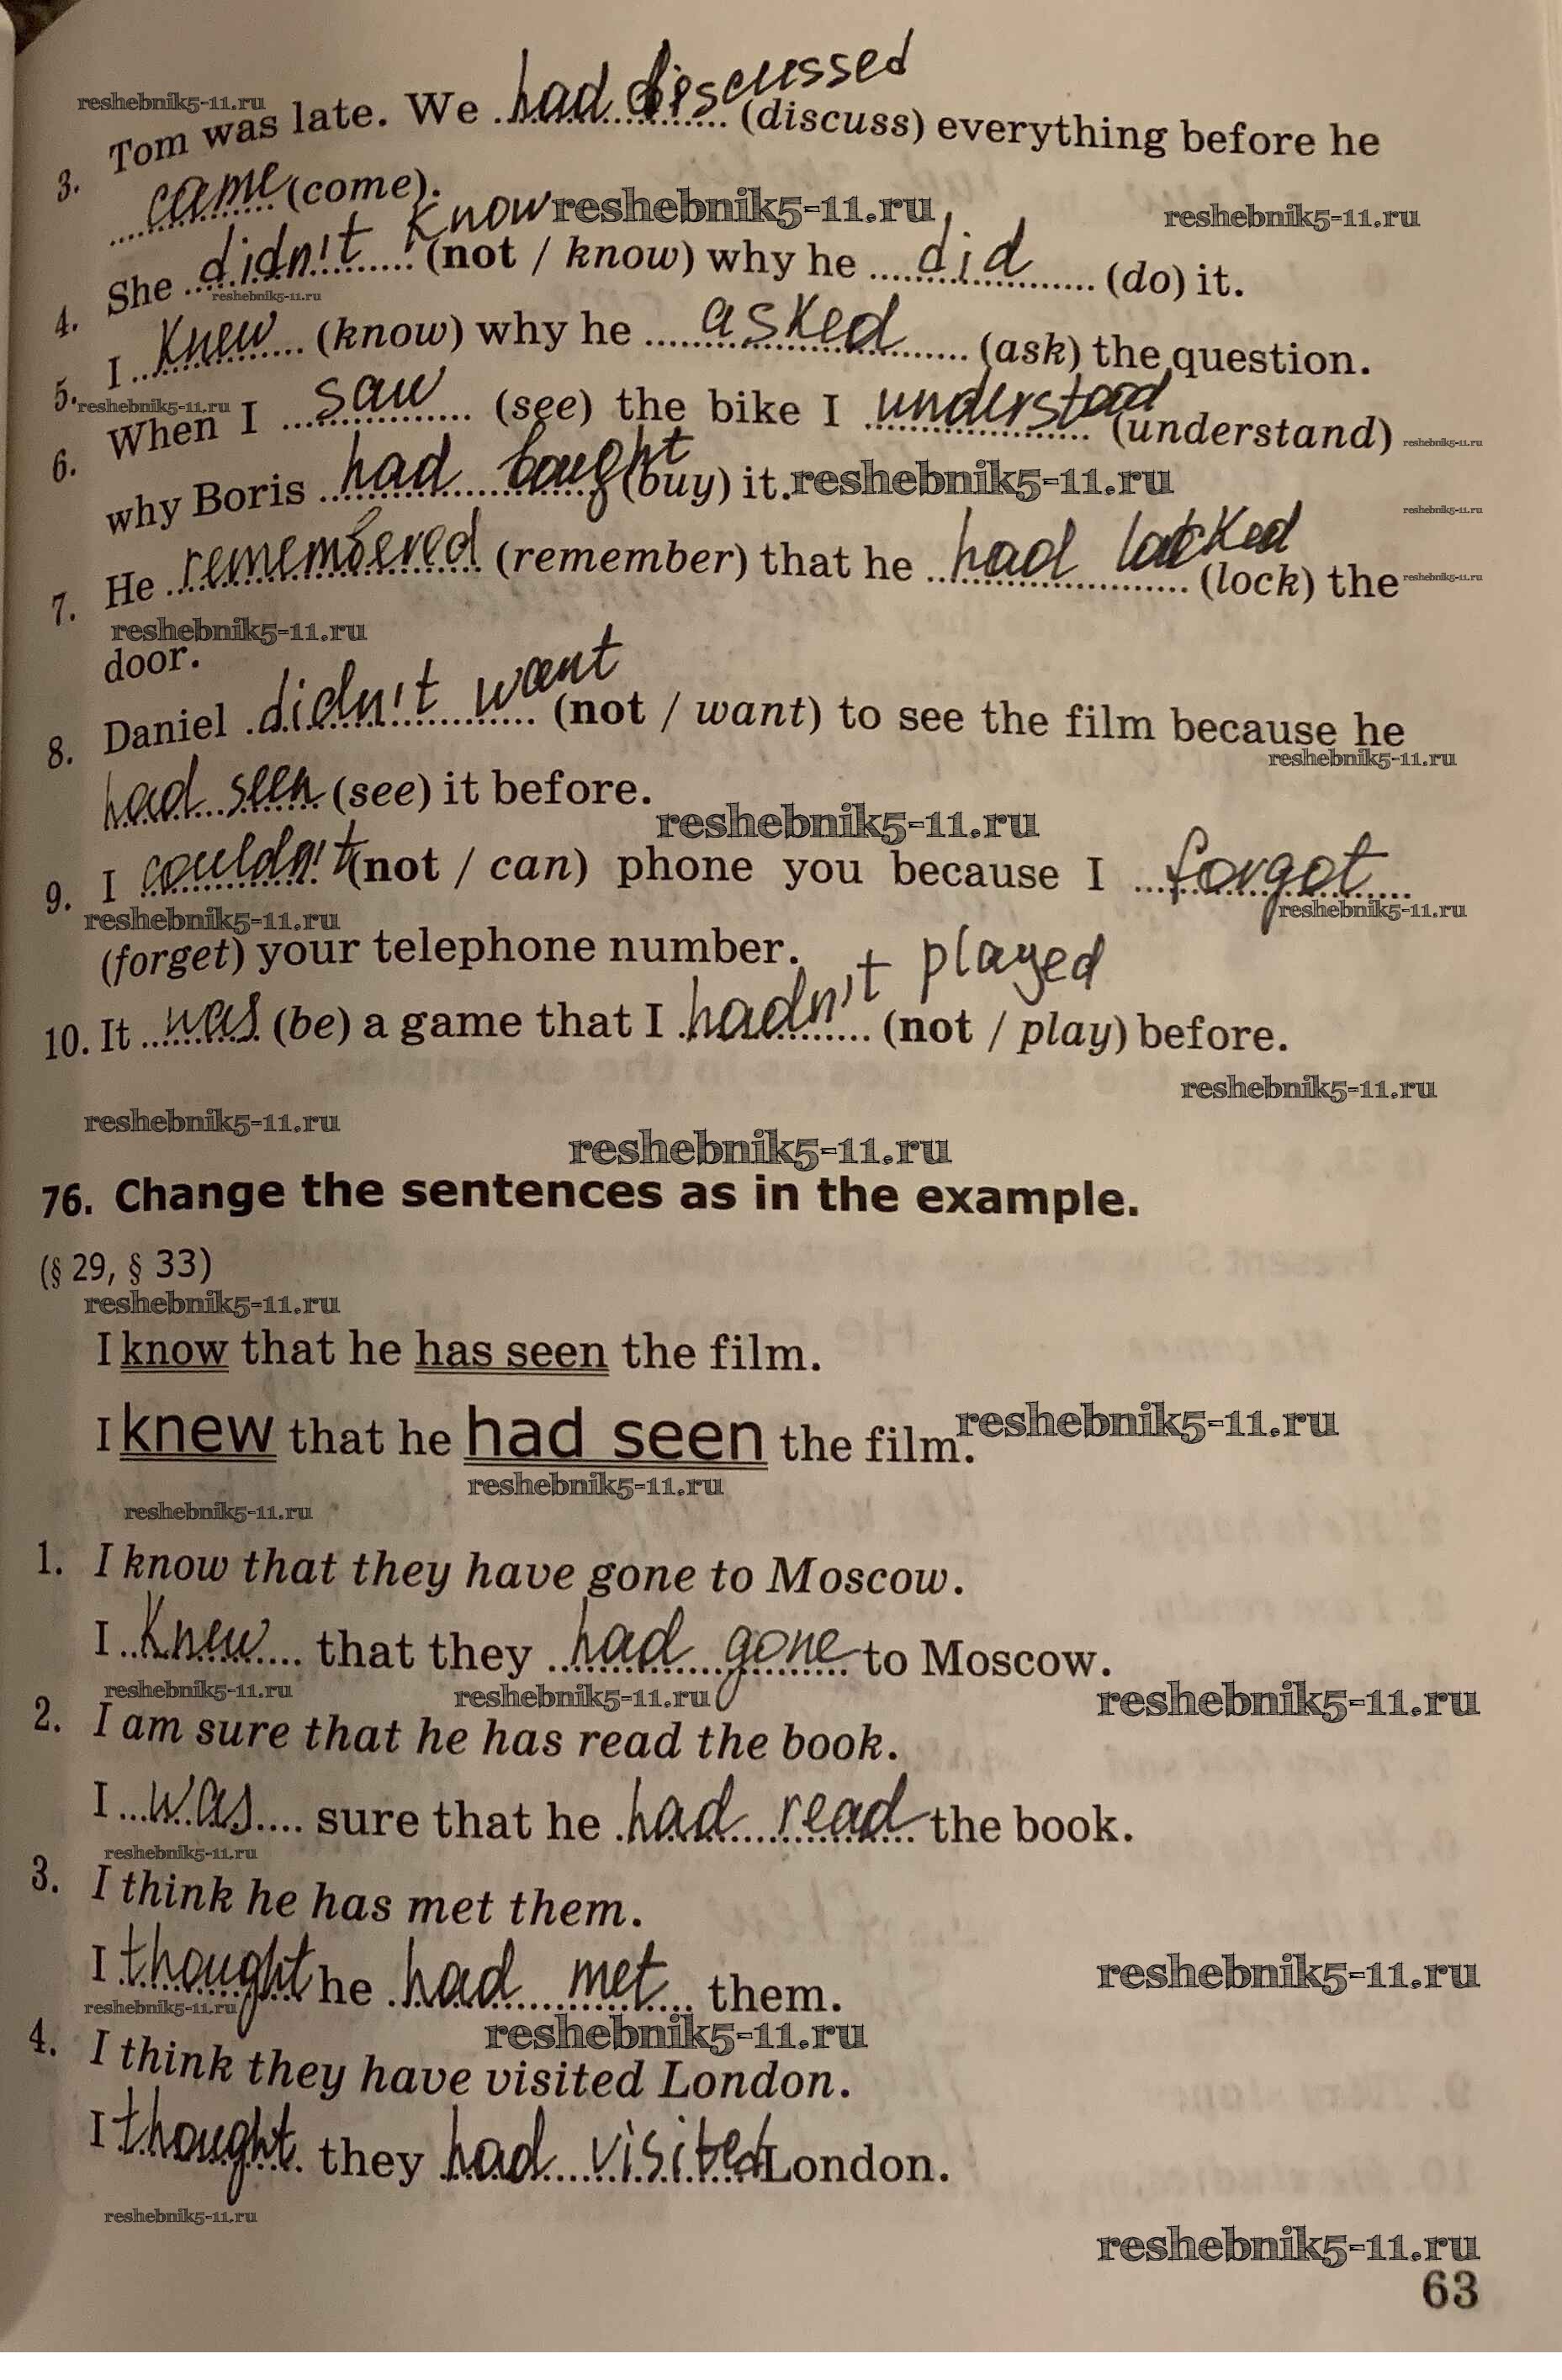 reshebnik5-11.ru
3. Tom was late. We had discussed (discuss) everything before he
came (come).
reshebnik5-11.ru reshebnik5-11.ru
4. She didn't know (not / know) why he did (do) it.
reshebnik5-11.ru
5. I knew (know) why he asked (ask) the question.
reshebnik5-11.ru
6. When I saw (see) the bike I understood (understand)
reshebnik5-11.ru
why Boris had bought (buy) it. reshebnik5-11.ru
reshebnik5-11.ru
7. He remembered (remember) that he had locked (lock) the
reshebnik5-11.ru
reshebnik5-11.ru
door.
8. Daniel didn't want (not / want) to see the film because he
reshebnik5-11.ru
had seen (see) it before.
reshebnik5-11.ru
9. I couldn't (not / can) phone you because I forgot
reshebnik5-11.ru reshebnik5-11.ru
(forget) your telephone number.
10. It was (be) a game that I hadn't played (not / play) before.
reshebnik5-11.ru
reshebnik5-11.ru
reshebnik5-11.ru
76. Change the sentences as in the example.
(§ 29, § 33)
reshebnik5-11.ru
I know that he has seen the film.
I knew that he had seen the film. reshebnik5-11.ru
reshebnik5-11.ru
reshebnik5-11.ru
1. I know that they have gone to Moscow.
I knew that they had gone to Moscow.
reshebnik5-11.ru reshebnik5-11.ru reshebnik5-11.ru
2. I am sure that he has read the book.
I was sure that he had read the book.
reshebnik5-11.ru
3. I think he has met them.
I thought he had met them.
reshebnik5-11.ru
reshebnik5-11.ru
reshebnik5-11.ru
4. I think they have visited London.
I thought they had visited London.
reshebnik5-11.ru
reshebnik5-11.ru
63